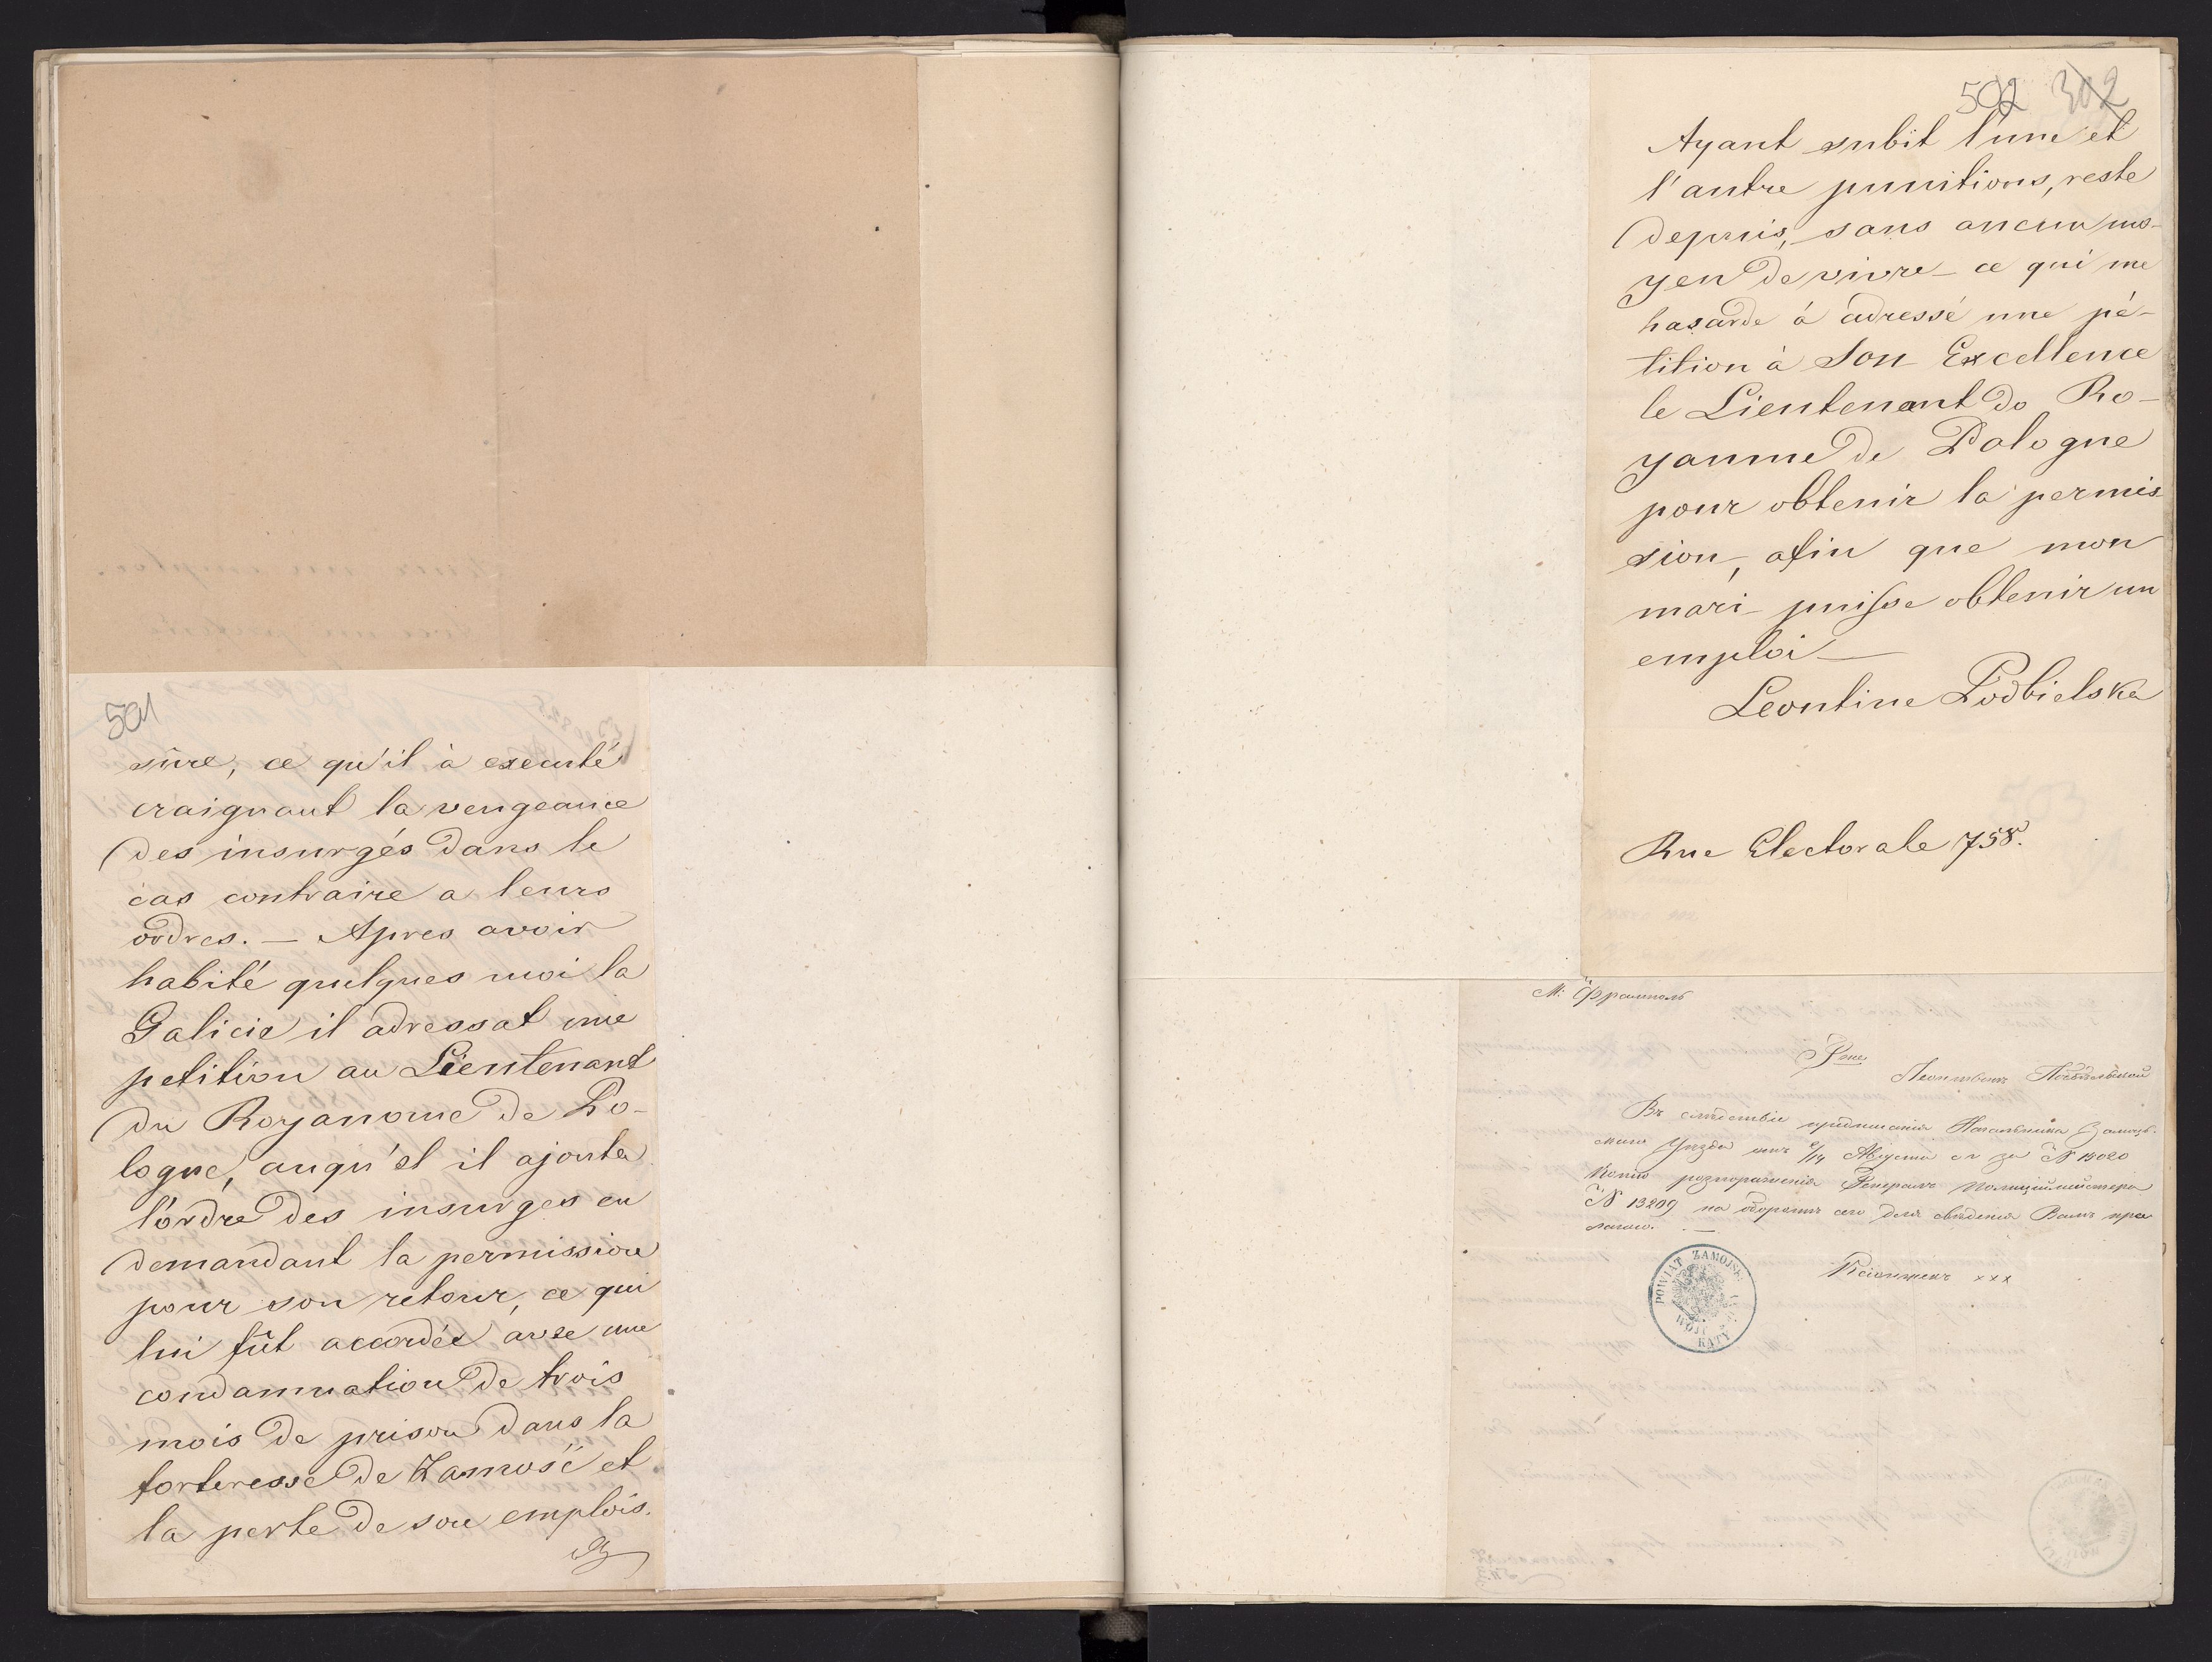 501
sûre, ce qu'il à executé
craignant la vengeance
des insurgés dans le
cas contraire a leurs
ordres. — Apres avoir
habité quelques moi la
Galicie il adressat une
petition au Lieutenant
du Royanome de Po-
logne, auqu'el il ajouta
l'ordre des insurges en
demandant la permission
pour son retour, ce qui
lui fût accordée avse une
condamnation de trois
mois de prison dans la
forteresse de Zamość et
la perte de son emplois.
502 302
Ayant subit l'une et
l'autre punitions, reste
depuis, sans aucun mo-
yen de vivre — ce qui me
hasarde á adressé une pé-
tition à Son Excellence
le Lieutenant do Ro-
yaume de Pologne
pour obtenir la permis
sion, afin que mon
mari puisse obtenir un
emploi —
Leontine Podbielska
Rue Electorale 758.
М: Фрамполь
Леонтинѣ Подбѣльской
Въ слѣдствіе предписанія Начальника Замость-
скаго Уѣзда отъ 2/14 Августа с г за № 13020
Копію распоряженія Генералъ Полиціймейстера
№ 13209 на оборотѣ сего для свѣденія Вамъ пре
лагаю. —
xxx
POWIAT ZAMOJSKI
WÓJT
KĄTY